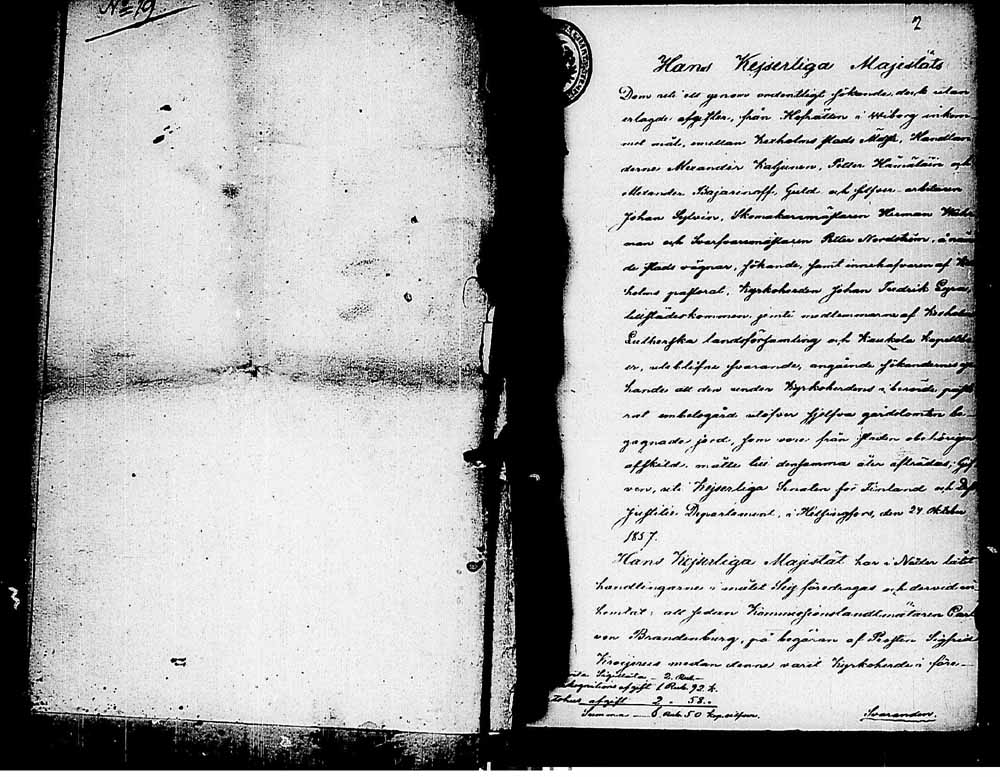 No 19
2
Hans Kejserliga Majestäts
Dom uti ett genom ordentligt sökande, dock utan
erlagde afgifter, från Hofrätten i Wiborg inkom
met mål, emellan Kexholms stads Handlan
derne Alexander Katjunen, Petter Hämäläin och
Alexander Bajarinoff, Guld och silfver arbetaren
Johan Sylvin, Skomakaremästaren Herman
man och Svarfvaremästaren Petter Nordström, å
de stads vägnar, sökande, samt innehafvaren af
holms pastorat, Kyrkoherden Johan Fredrik
tillstädeskommen, jemte medlemmarne af Kexholms
Lutherska landsförsamling och Kaukola Kapell
er, uteblifne svarande, angående sökandernes
hande att den under Kyrkoherdens i berörde pasto
rat embetsgård utöfver sjelfva gårdstomten be-
gagnade jord, som vore från staden obehörigen
afskild, måtte till densamma åter afträdas; Gif
ven, uti Kejserliga Senaten för Finland och Dess
Justitie Departement, i Helsingfors, den 24 Oktober
1857.
Hans Kejserliga Majestät har i Nåder låtit
handlingarne i målet Sig föredragas och dervid in
hemtat: att sedan Kommissionslandtmätaren Carl
von Brandenburg, på begäran af Prosten Sigfrid
Kroijerus medan denne varit Kyrkoherde i före-
Sigillata - 2. Rub.
afgift 1 Rub. 92 k.
afgift 2 " 58 "
Summa - 6 Rub. 50 kop. silfver.
Svaranden.